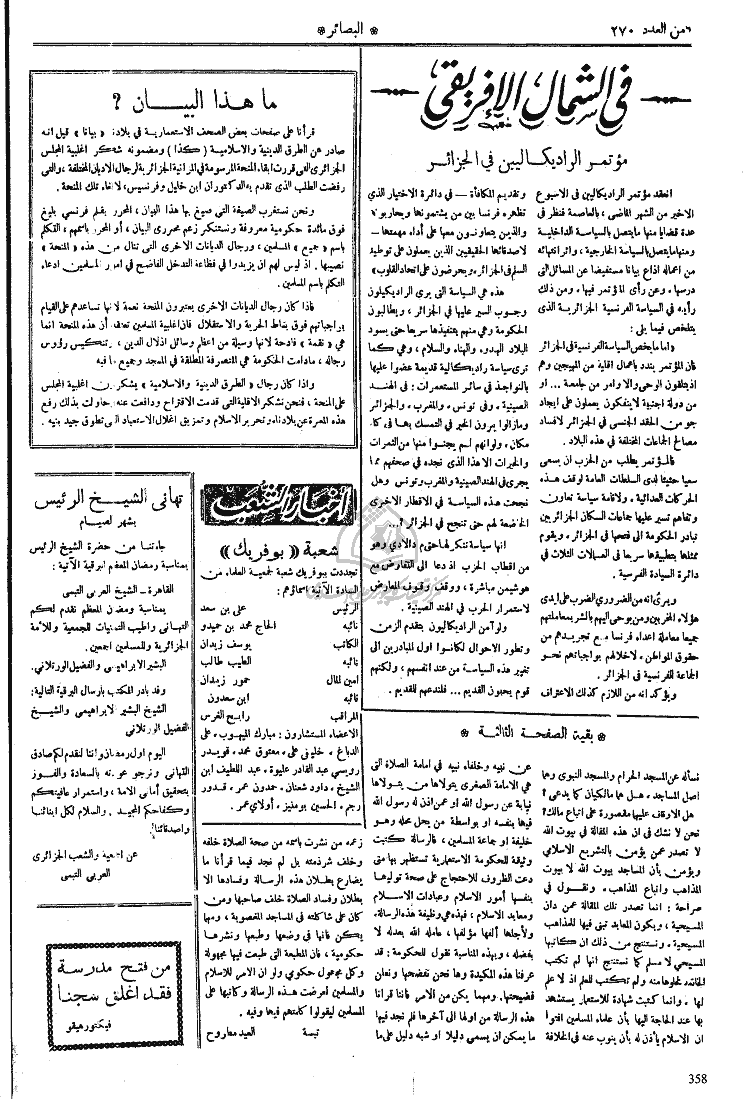 من العدد ٢٧٠
* البصائر *
في الشمال الإفريقي
مؤتمر الراديكاليين في الجزائر
انعقد مؤتمر الراديكاليين في الاسبوع
الاخير من الشهر الماضي، بالعاصمة فنظر في
عدة قضايا منها ما يتصل بالسياسة الداخلية
ومنها ما يتصل بالسياسة الخارجية، واثر انتهائه
من اعماله اذاع بيانا مستفيضا عن المسائل التي
درسها، وعن رأى المؤتمر فيها، ومن ذلك
رأيه في السياسة الفرنسية الجزائرية الذي
يتلخص فيما يلي:
«اما يخص السياسة الفرنسية في الجزائر
فان المؤتمر يندد باعمال اقلية من المهيجين وهم
اذ يتلقون الوحي والاوامر من جامعة... او
من دولة اجنبية لا ينفكون يعملون على ايجاد
جو من الحقد الجنسي في الجزائر لافساد
مصالح الجماعات المختلفة في هذه البلاد.
فالمؤتمر يطلب من الحزب ان يسعى
سعيا حثيثا لدى السلطات العامة لوقف هذه
الحركات العدائية. ولاقامة سياسة تعاون
وتفاهم تسير عليها جماعات السكان الجزائر بين
تبادر الحكومة الى فتحها في الجزائر، ويقوم
ممثلها بتطبيقها سريعا في العمالات الثلاث في
دائرة السيادة الفرنسية.
ويرى انه من الضروري الضرب على ايدى
هؤلاء المخربين ومن يوحى اليهم بالشر بمعاملتهم
جميعا معاملة اعداء فرنسا، مع تجريدهم من
حقوق المواطن، لاخلالهم بواجباتهم نحو
الجماعة الفرنسية في الجزائر.
ويؤكد انه من اللازم كذلك الاعتراف
وتقديم المكافأة — في دائرة الاختيار الذي
تظهره فرنسا بين من يشتمونها ويحاربونها
والذين يتعاونون معها على أداء مهمتها —
لاصدقائها الحقيقيين الذين يعملون على توطيد
السلم في الجزائر، ويحرضون على اتحاد القلوب»
هذه هي السياسة التي يرى الراديكيلون
وجوب السير عليها في الجزائر، ويطالبون
الحكومة وهي منهم بتنفيذها سريعا حتى يسود
البلاد الهدوء والهناء والسلام، وهي كما
ترى سياسة راديكالية قديمة عضوا عليها
بالنواجذ في سائر المستعمرات: في الهند
الصينية. وفي تونس، والمغرب، والجزائر
ومازالوا يرون الخير في التمسك بها في كل
مكان، ولو انهم لم يجنوا منها من الثمرات
والخيرات الا هذا الذي نجده في صحفهم مما
يجرى في الهند الصينية والمغرب وتونس وهل
نجحت هذه السياسة في الاقطار الاخرى
الخاضعة لهم حتى تنجح في الجزائر؟...
انها سياسة تنكر لها حتى م دالادي وهو
من اقطاب الحزب اذ دعا الى التفاوض مع
هوشيمن مباشرة، ووقف وقوف المعارض
لاستمرار الحرب في الهند الصينية.
ولو آمن الراديكاليون بتقدم الزمن
وتطور الاحوال لكانوا اول المبادرين الى
تغيير هذه السياسة من عند انفسهم، ولكنهم
قوم يحبون القديم... فلندعهم للقديم.
ما هذا البيـــان؟
قرأنا على صفحات بعض الصحف الاستعمارية في بلادنا «بيانا» قيل انه
صادر عن الطرق الدينية والاسلامية (كذا) ومضمونه شكر اغلبية المجلس
الجزائري التي قررت ابقاء المنحة المرسومة في الميزانية الجزائرية لرجال الاديان المختلفة، والتي
رفضت الطلب الذي تقدم به الدكتوران ابن خليل وفرنسيس، لالغاء تلك المنحة.
ونحن نستغرب الصيغة التي صيغ بها هذا البيان، المحرر بقلم فرنسي بليغ
فوق مائدة حكومية معروفة ونستنكر زعم محررى البيان، أو المحرر باسمهم، التكلم
باسم «جميع» المسلمين، ورجال الديانات الاخرى التي تنال من هذه «المنحة»
نصيبها. اذ ليس لهم ان يزيدوا في فظاعة التدخل الفاضح في امور المسلمين ادعاء
التكلم باسم المسلمين.
فاذا كان رجال الديانات الاخرى يعتبرون المنحة نعمة لانها تساعدهم على القيام
بواجباتهم فوق بساط الحرية والاستقلال فان اغلبية المسلمين تعتقد أن هذه المنحة انما
هي «نقمة» فادحة لانها وسيلة من اعظم وسائل اذلال الدين، وتنكيس رؤوس
رجاله، مادامت الحكومة هي المتصرفة المطلقة في المسجد وجميع ما فيه
واذا كان رجال «الطرق الدينية والاسلامية» يشكرون اغلبية المجلس
على المنحة، فنحن نشكر الاقلية التي قدمت الاقتراح ودافعت عنه، حاولت بذلك رفع
هذه المعرة عن بلادنا، وتحرير الاسلام وتمزيق اغلال الاستعباد التي تطوق جيد بنيه.
أخبار الشعب
شعبة «بوفريك»
تجددت ببوفريك شعبة لجمعية العلماء من
السادة الآتية اسماؤهم:
الرئيس علي بن سعد
نائبه الحاج محمد بن حميدو
الكاتب يوسف زيدان
نائبه الطيب طالب
امين المال حمور زيدان
نائبه ابن سعدون
المراقب رابح الفرس
الاعضاء المستشارون: مبارك الميهوب، على
الدباغ، خليلي على، معتوق محمد، قويدر
رويسي عبد القادر عليوة، عبد اللطيف ابن
الشيخ، داود شعان، حمدون عمر، قدور
رجم، الحسين بومنيز، أولاي عمر.
تهاني الشيـــخ الرئيس
بشهر الصيام
جاءتنا من حضرة الشيخ الرئيس
بمناسبة رمضان المعظم البرقية الآتية:
القاهرة — الشيخ العربي التبسي
بمناسبة رمضان المعظم نقدم لكم
التهاني واطيب التمنيات للجمعية وللأمة
الجزائرية وللمسلمين اجمعين.
البشير الابراهيمي والفضيل الورتلاني.
وقد بادر المكتب بارسال البرقية التالية:
الشيخ البشير الابراهيمي والشيخ
الفضيل الورتلاني
اليوم اول رمضان واننا لنقدم لكم صادق
التهاني ونرجو عودته بالسعادة والفوز
بتحقيق أماني الامة، واستمرار عافيتكم
وكفاحكم المجيد، والسلام لكل ابنائنا
واصدقائنا!
عن الجمعية والشعب الجزائري
العربي التبسي
من فتح مدرسة
فقد اغلق سجنا
فيكتور هيقو
* بقية الصفحة الثالثة *
نسأله عن المسجد الحرام والمسجد النبوى وهما
اصل المساجد. هل هما مالكيان كما يدعى؟
هل الاوقاف عليها مقصورة على اتباع مالك؟
نحن لا نشك في ان هذه المقالة في بيوت الله
لا تصدر عمن يؤمن بالتشريع الاسلامي
ويؤمن بأن المساجد بيوت الله لا بيوت
المذاهب واتباع المذاهب. ونقول في
صراحة: انما تصدر تلك المقالة عمن دان
المسيحية، ويكون المعابد تبنى فيها للمذاهب
المسيحية. ونستنتج من ذلك ان كاتبها
مسيحي لا مسلم كما نستنتج انها لم تكتب
لخلوها منه ولم تكتب للعلم اذ لا علم
فيها، وانما كتبت شهادة للاستعمار يستشهد
بها عند الحاجة اليها بأن علماء المسلمين افتوا
ان الاسلام يأذن له بأن ينوب عنه في الخلافة
عن نبيه وخلفاء نبيه في امامة الصلاة التي
هي الامامة الصغرى يتولاها من يتولاها
نيابة عن رسول الله او عمن اذن له رسول الله
فيها بنفسه او بواسطة من يحل محله وهو
خليفة او جماعة المسلمين، فالرسالة كتبت
وثيقة للحكومة الاستعمارية تستظهر بها متى
دعت الظروف للاحتجاج على صحة توليها
بنفسها أمور الاسلام وعبادات الاســـلام
ومعابد الاسلام، فهذه هي وظيفة هذه الرسالة
ولأجلها ألفها مؤلفها، عامله الله بعدله لا
بفضله، وبهذه المناسبة نقول للحكومة: قد
عرفنا هذه المكيدة وها نحن نفضحها ونعلن
فضيحتها. ومهما يكن من الامر فاننا قرأنا
هذه الرسالة من اولها الى آخرها فلم نجد فيها
ما يمكن ان يسمى دليلا او شبه دليل على ما
زعمه من نشرت باسمه من صحة الصلاة خلفه
وخلف شرذمته بل لم نجد فيما قرأنا ما
يضارع بطلان هذه الرسالة وفسادها الا
بطلان وفساد الصلاة خلف صاحبها ومن
كان على شاكلته في المساجد المغصوبة، ومهما
يكن فانها في وضعها وطبعها ونشرها
حكومية، فان المطبعة التي طبعت فيها مجهولة
وكل مجهول حكومي ولو ان الامر للاسلام
والمسلمين لعرضت هذه الرسالة وكاتبها على
المسلمين ليقولوا كلمتهم فيها وفيه.
تبسة العيد مطروح
358